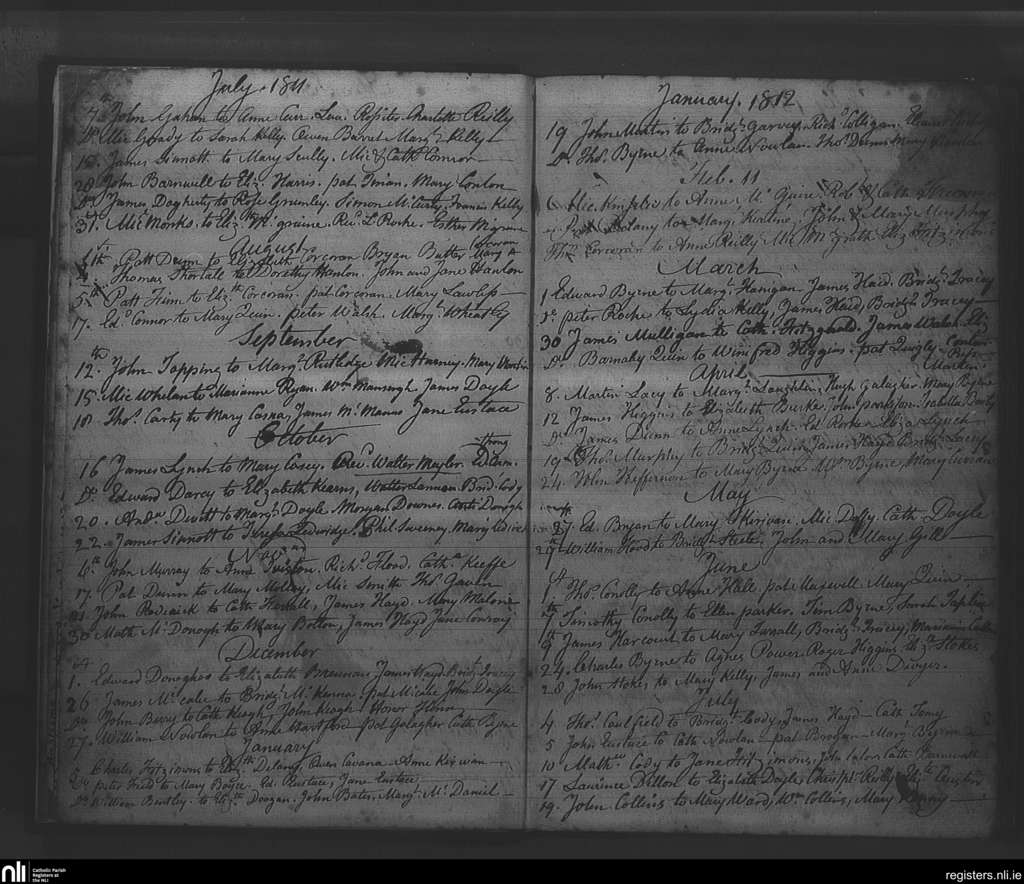 July. 1811
4th John Gahan to Anne Curr. Repsito. Charlott Reilly
Do. Mic Grady to Sarah Kelly. Owen Barret Margt Kelly
James Sinnott to Mary Scully. Mic & Cath Connor
28 John Barnwell to Eliz. Harris. pat Tinan. Mary Conlon
Do. James Dogherty to Rose Grumley. Simon McCarty. Francis Kelly
31. Mic Monks. to Eliz. McGraine. Revd. L Rorke. Esther Mcgraine
August
Patt Dunn to Elizabeth Corcoran Bryan Butler Mary Corcoran
Thomas Thortall to Dorothy Hanlon. John and Jane Hanlon
5th Patt Finn to Elizth Corcoran. pat Corcoran. Mary Lawless
17. Ed. Connor to Mary Quin. peter Walsh. Margt Wheatly
September
12th. John Topping to Margt Rutledge Mic Harney. Mary
15 Mic Whelan to Marianne Ryan. Wm Mansergh. James Doyle
18. Thos. Carty to Mary James McManus Jane Eustace
October
16 James Lynch to Mary Casey. Revd. Walter Meyler. Edwn.
Do. Edward Darcy to Elizabeth Kearns, Walter Lennan. Brid. Cody
20. Andw Divitt to Margt Doyle. Morgan Downes. Donogh
22. James Sinnott to Teresa Ledwidge. Phil Sweeney. Mary
Nov.
4th John Murray to Anne Richd. Flood. Cathn Keeffe
17. Pat Dunn to Mary Molloy, Mic Smith Thos. Gavan
John Roderick to Cath Farrell, James Hayd. Mary Malone
30 Math McDonogh to Mary Bolton, James Hayd Jane Conroy
December
1. Edward Donoghoe to Elizabeth Brennan, James Hayd. Bridt Tracey
26 James McCale to Bridgt McKenna. pat McCale John Doyle
Do. John Berry to Cath Keogh, John Keogh Honor Flinn
27. William Nowlan to Anne pat Galagher Cath Byrne
January
5 Charles Fitzimons to Elizth Delany. Owen Cavana. Anne Kirwan
Do. peter Field to Mary Boyce. Ed. Eustace, Jane Eustace
Do. William Bentley. to Elizth Doogan. John Bates. Margt McDaniel
January. 1812
19 John Martin to Bridgt Garvey. Richd Colligan.
Do. Thos. Byrne to Anne Nowlan. Thos. Dunn Mary
Feb. 11
6 Mic. to Anne McGuire Rob & Cath
to Margt John & Mary Murphy
Corcoran to Anne Reilly Mic McGrath Eliz
March
1 Edward Byrne to Margt Hanigan James Haid. Bridgt Tracey
Do. peter Roche to Lydia Kelly, James Haid, Bridgt Tracey
30 James Mulligan to Cath. Fitzgerald. James Walsh Eliz Conlan
Do. Barnaby Quin to Winifred Higgins. pat Quigly
April
8. Martin Lacy to Margt Laughlin, Hugh Galagher. Mary Byrne
12 James Higgins to Elizabeth Burke. John parkson. Isabella
Do. James Dunn to Anne Lynch. Ed Rorke. Eliza Lynch
19 Thos. Murphy to Bridgt Quin James Hayd Bridgt Tracey
24. John Heffernon to Mary Byrne Wm Byrne, Mary Curran
May
27 Ed. Bryan to Mary Mic Duffy. Cath. Doyle
29 William Hood to Bridgt Steele. John and Mary Gill
June
1. Thos. to Anne Hall. pat Maxwell Mary Quin
7 Timothy Conolly to Ellen parker. Tim Byrne, Sarah
9 James Harcourt to Mary Farrall, Bridgt Tracey, Marianne
24. Charles Byrne to Agnes Power. Roger Higgins. Stokes
28 John Stokes to Mary Kelly. James and Anne Dwyer.
July
4. Thos. Caulfield to Bridgt Cody, James Hayd. Cath
5 John Eustace to Cath Nowlan pat Brogan Mary Byrne
10 Mathw Cody to Jane Fitzimons, John Cath. Farnwell
17 Laurence Dillon to Elizabeth Doyle, Reilly
19. John Collins to Mary Ward, Wm Collins, Mary Kenny
nli
Catholic Parish
Registers at
the NLI
registers.nli.ie